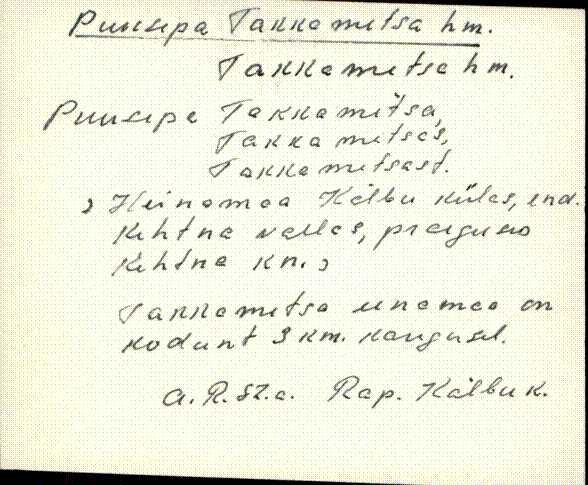 Puusepa Takkametsa hm.
Takkametsa hm.
Puusepa Takkametsa,
Takkametsas,
Takkametsast.
Heinamaa Kälbu külas, end.
Kehtna vallas, praeguso
Kehtna kn.
Takkametsa einamaa on
kodunt 3 km. kaugusel.
A. R. Rap. Kälbu k.